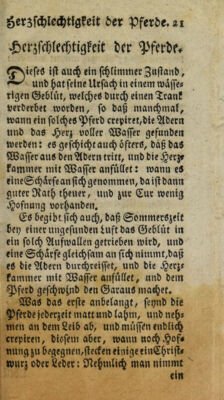 Herzschlechtigkeit der Pferde. 21
Herzschlechtigkeit der Pferde.
Dieses ist auch ein schlimmer Zustand,
und hat seine Ursach in einem wässe-
rigen Geblüt, welches durch einen Trank
verderbet worden, so daß manchmal,
wann ein solches Pferd crepiret, die Adern
und das Herz voller Wasser gefunden
werden: es geschicht auch öfters, daß das
Wasser aus den Adern tritt, und die Herz-
kammer mit Wasser anfüllet: wann es
eine Schärfe an sich genommen, da ist dann
guter Rath theuer, und zur Cur wenig
Hofnung vorhanden.
Es begibt sich auch, daß Sommerszeit
bey einer ungesunden Luft das Geblüt in
ein solch Aufwallen getrieben wird, und
eine Schärfe gleichsam an sich nimmt, daß
es die Adern durchreisset, und die Herz-
kammer mit Wasser anfüllet, und dem
Pferd geschwind den Garaus machet.
Was das erste anbelangt, seynd die
Pferde jederzeit matt und lahm, und neh-
men an dem Leib ab, und müssen endlich
crepiren, diesem aber, wann noch Hof-
nung zu begegnen, stecken einige ein Christ-
wurz oder Leder: Nehmlich man nimmt
ein